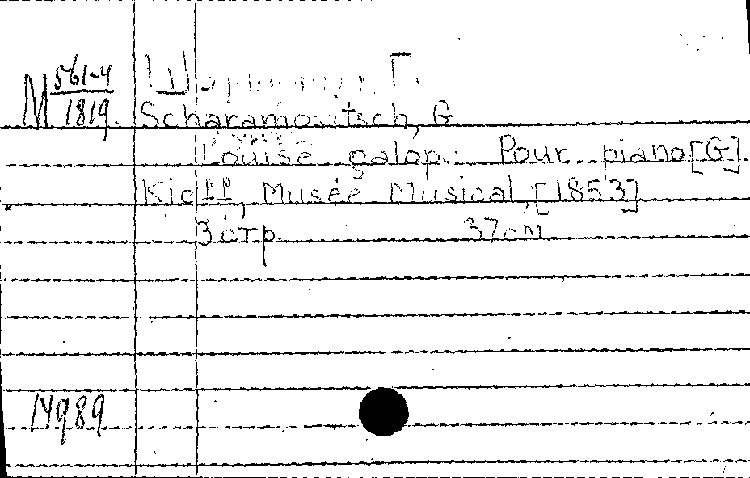 М 561-4 Г.
1819. Scharamowitsch, G
Louise galop. Pour piano [G].
Kieff, Musée Musical, [1853]
3 стр 37 см
N989